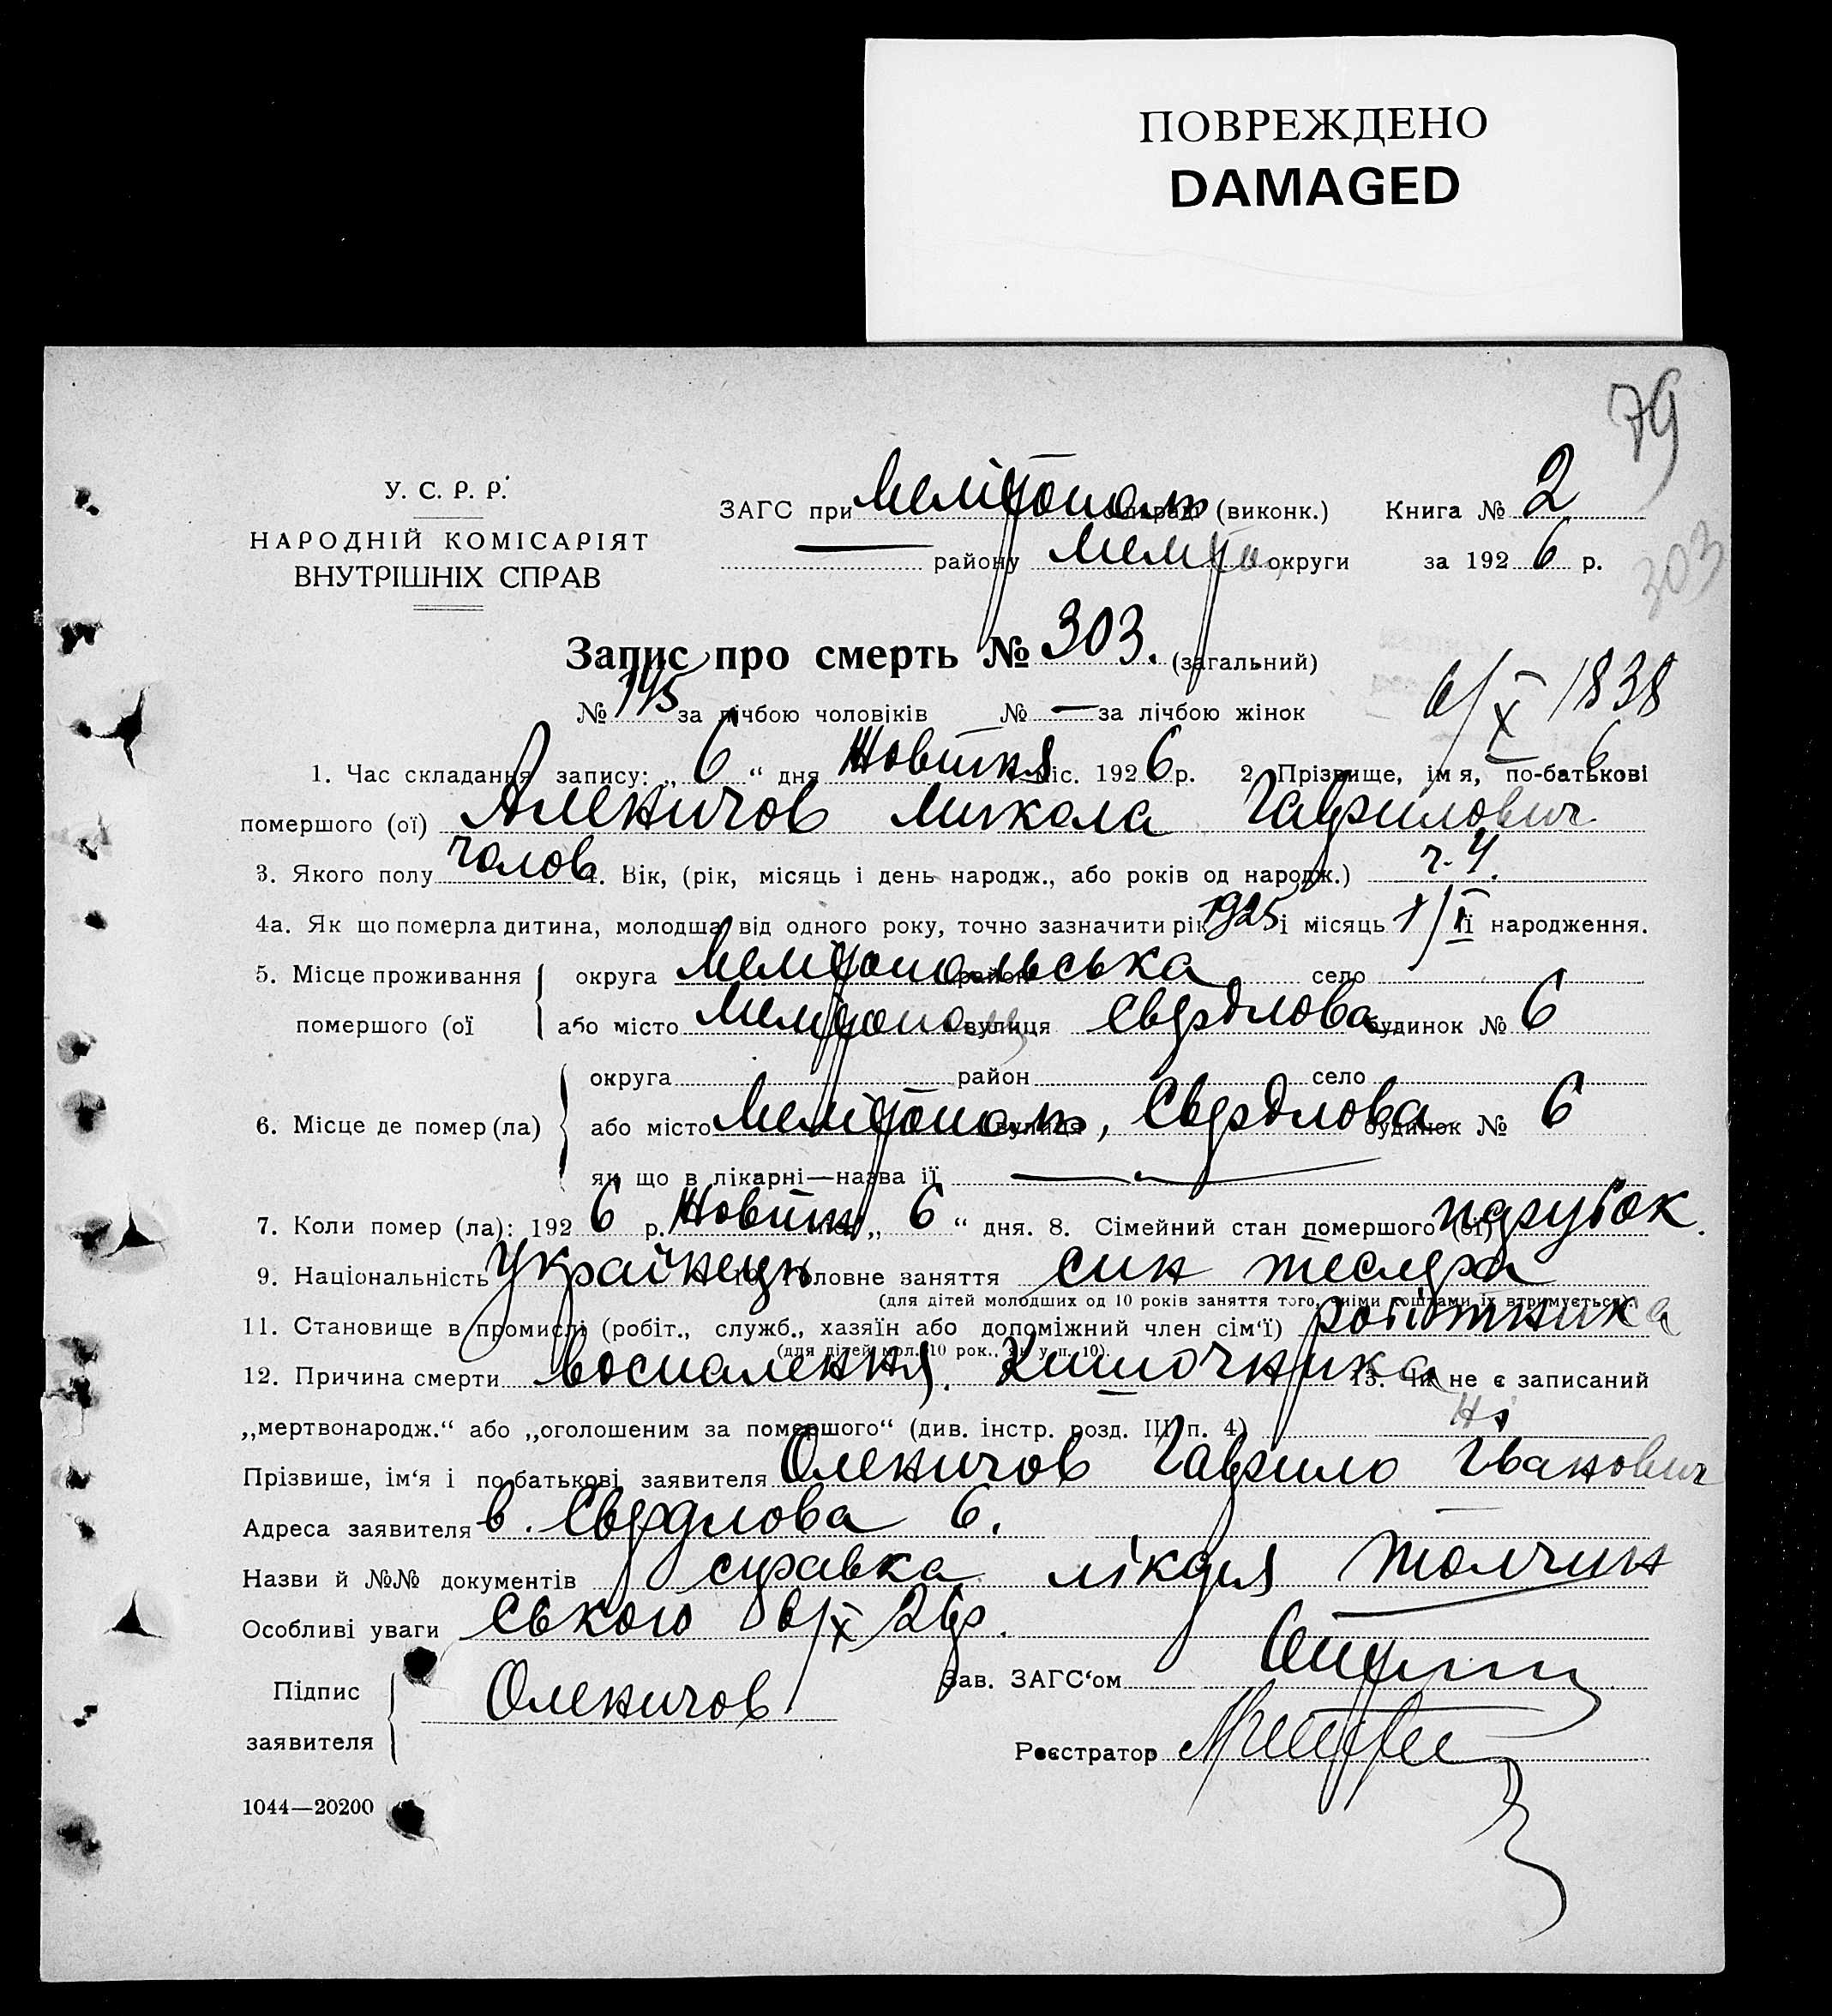 ПОВРЕЖДЕНО
DAMAGED
79
У. С. Р. Р.
НАРОДНІЙ КОМІСАРІЯТ
ВНУТРІШНІХ СПРАВ
ЗАГС при Мелітополь (виконк.) Книга № 2
— району Меліто округи за 1926 р.
303
Запис про смерть № 303. (загальний)
№ 145 за лічбою чоловіків № — за лічбою жінок
6/X 1838
6
1. Час складання запису: „6“ дня Жовтня міс. 1926 р. 2 Прізвище, ім я, по-батькові
помершого (ої) Алекичов Микола Гаврилович
3. Якого полу чолов 4. Вік, (рік, місяць і день народж., або років од народж.)
4а. Як що померла дитина, молодща від одного року, точно зазначити рік 1925 і місяць її народження.
5. Місце проживання округа Мелітопольська район село
помершого (ої або місто Мелітополь вулиця Свердлова будинок № 6
округа район село
6. Місце де помер (ла) або місто Мелітополь вулиця, Свердлова будинок № 6
як що в лікарні—назва її —
7. Коли помер (ла): 1926 р. Жовтн міс. „6“ дня. 8. Сімейний стан помершого (ої) парубок.
9. Національність Українець 10. Головне заняття син тесляра
(для дітей молодших од 10 років заняття того, чиїми коштами їх втримується)
11. Становище в промислі (робіт., служб., хазяїн або допоміжний член сім'ї) робітника
(для дітей мол. 10 рок., як у п. 10).
12. Причина смерти воспалення кишочника 13. Чи не є записаний
„мертвонародж.“ або „оголошеним за помершого“ (див. інстр. розд. III п. 4) Ні
Прізвише, ім'я і по батькові заявителя Олекичов Гаврило Іванович
Адреса заявителя в. Свердлова 6.
Назви й №№ документів справка лікаря Толчин
Особливі уваги ського 6/X 26р.
Підпис заявителя Олекичов
Зав. ЗАГС'ом
Реєстратор
1044—20200